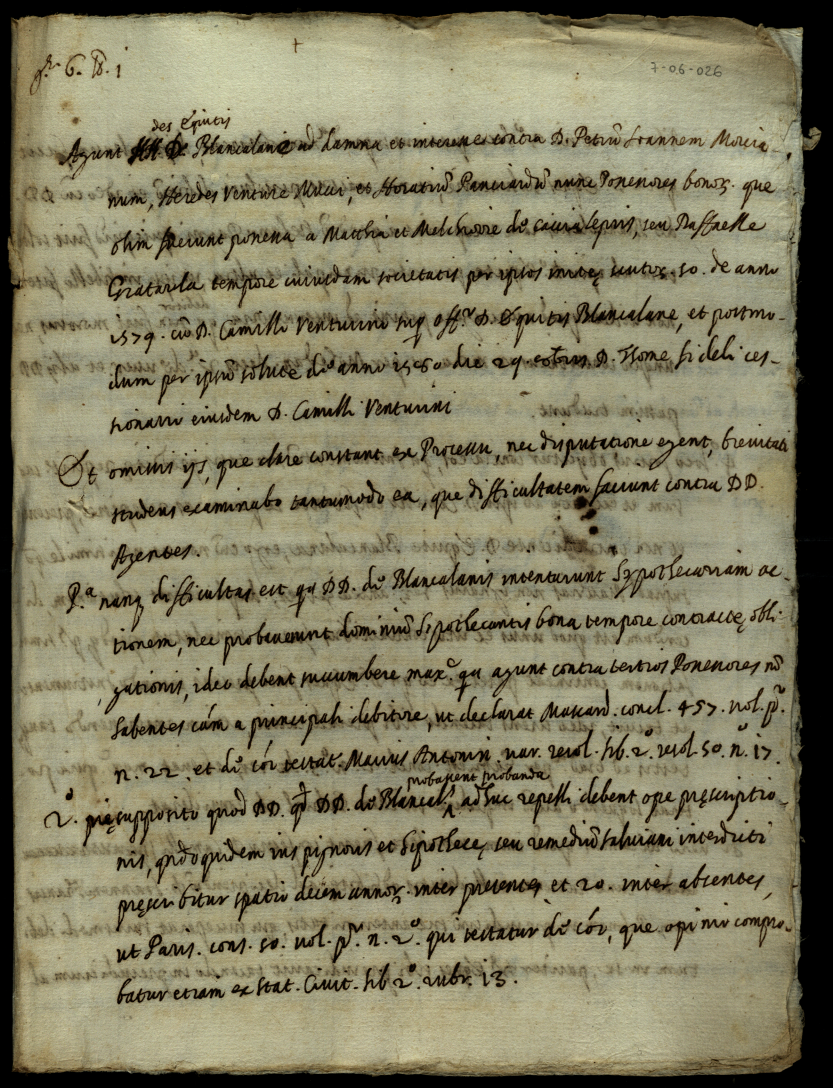 7-06-026
des Equitis
Agunt Blancalane ad damna et interesse contra D. Petrū Joannem Morcia
num, Heredes Venture Mucci, et Horatiū Panciardū nunc Possessores bonoȝ. que
olim fuerunt possessa a Matthia et Melchiorre de Caccialepris, seu Raffaelle
Gratarola tempore cuiusdam societatis per ipsos initę scutoȝ. 50. de anno
1579. cū D. Camillo Venturino sup off.º D. Equitis Blancalane, et postmo-
dum per ipsū solute de anno 1580 die 29. 8obris D. Thome fideli ces-
sionario eiusdem D. Camilli Venturini
Et omissis ijs, que clare constant ex Processu, nec disputatione egent, brevitati
studens examinabo tantumodo ea, que difficultatem faciunt contra DD.
Agentes.
P.ª nanq difficultas est qa DD. de Blancalanis intentarunt Hypothecariam ac-
tionem, nec probaverunt dominiū Hypothecantis bona tempore contractę obli-
gationis, ideo debent succumbere max.e qa agunt contra tertios Possessores nō
habentes cām a principali debitore, ut declarat Mascard. concl. 457. vol. p.º
n. 22. et de cōi testat. Marius Antonin. var. resol. lib. 2.º resol. 50. n.º 17.
probassent probanda
2.º pręsupposito quod DD. qd DD. de Blancal.s adhuc repelli debent ope pręscriptio-
nis, qñdoquidem ius pignoris et Hipothecę, seu remediū salviani interdicti
pręscribitur spatio decem annoȝ. inter presentes et 20. inter absentes,
ut Paris. cons. 50. vol. p.º n. 2.º qui testatur de cōi, que opinio compro-
batur etiam ex Stat. Civit. lib. 2.º rubr. 13.